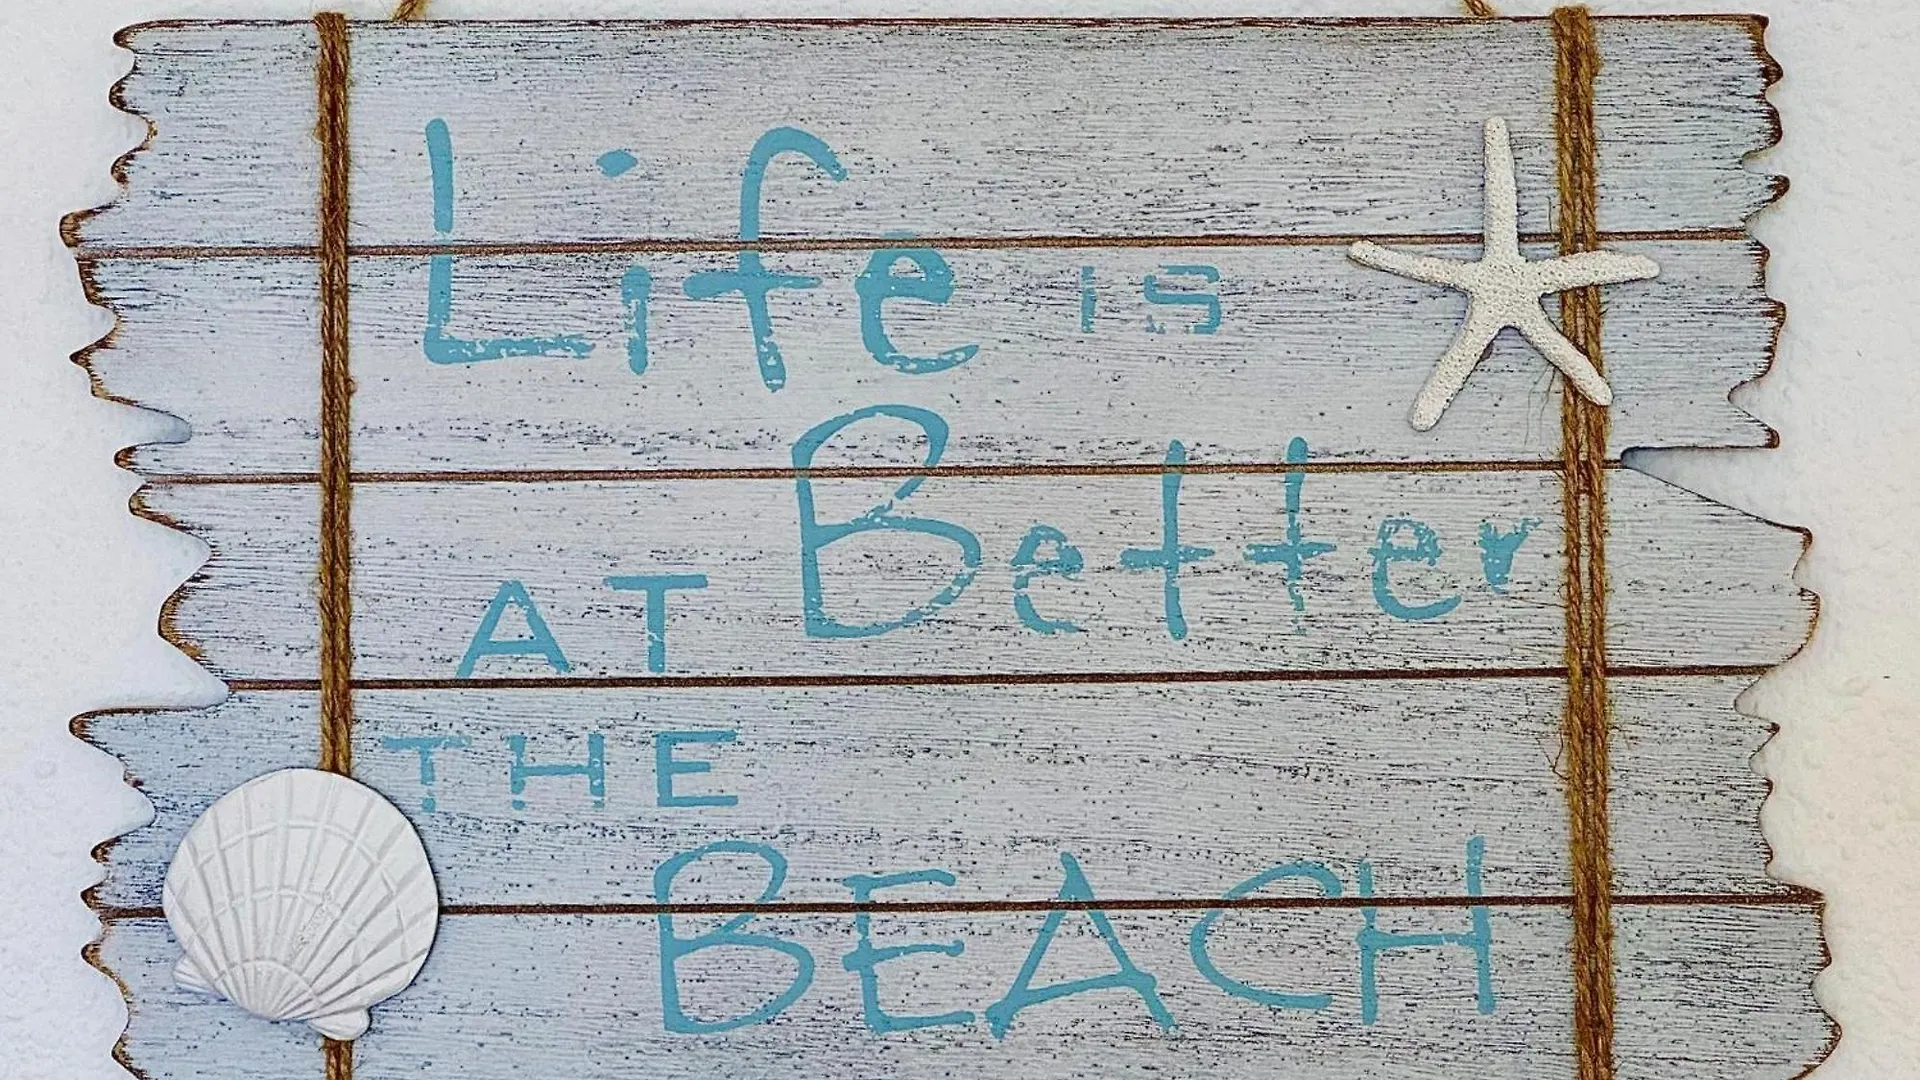 Life is
Better
AT
THE
BEACH